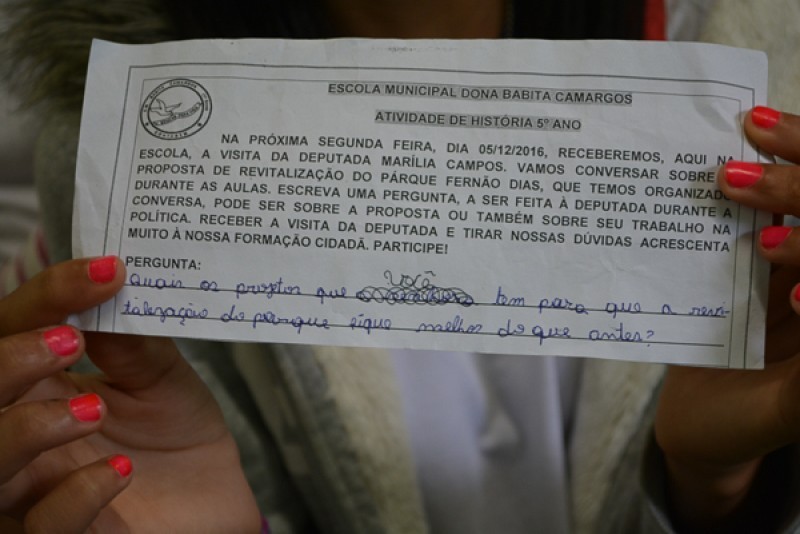 ESCOLA MUNICIPAL DONA BABITA CAMARGOS
ATIVIDADE DE HISTÓRIA 5º ANO
NA PRÓXIMA SEGUNDA FEIRA, DIA 05/12/2016, RECEBEREMOS, AQUI NA
ESCOLA, A VISITA DA DEPUTADA MARÍLIA CAMPOS. VAMOS CONVERSAR SOBRE
PROPOSTA DE REVITALIZAÇÃO DO PÁRQUE FERNÃO DIAS, QUE TEMOS ORGANIZADO
DURANTE AS AULAS. ESCREVA UMA PERGUNTA, A SER FEITA À DEPUTADA DURANTE A
CONVERSA, PODE SER SOBRE A PROPOSTA OU TAMBÉM SOBRE SEU TRABALHO NA
POLÍTICA. RECEBER A VISITA DA DEPUTADA E TIRAR NOSSAS DÚVIDAS ACRESCENTA
MUITO À NOSSA FORMAÇÃO CIDADÃ. PARTICIPE!
PERGUNTA:
você
Quais os projetos que tem para que a revi-
talização do parque fique melhor do que antes?